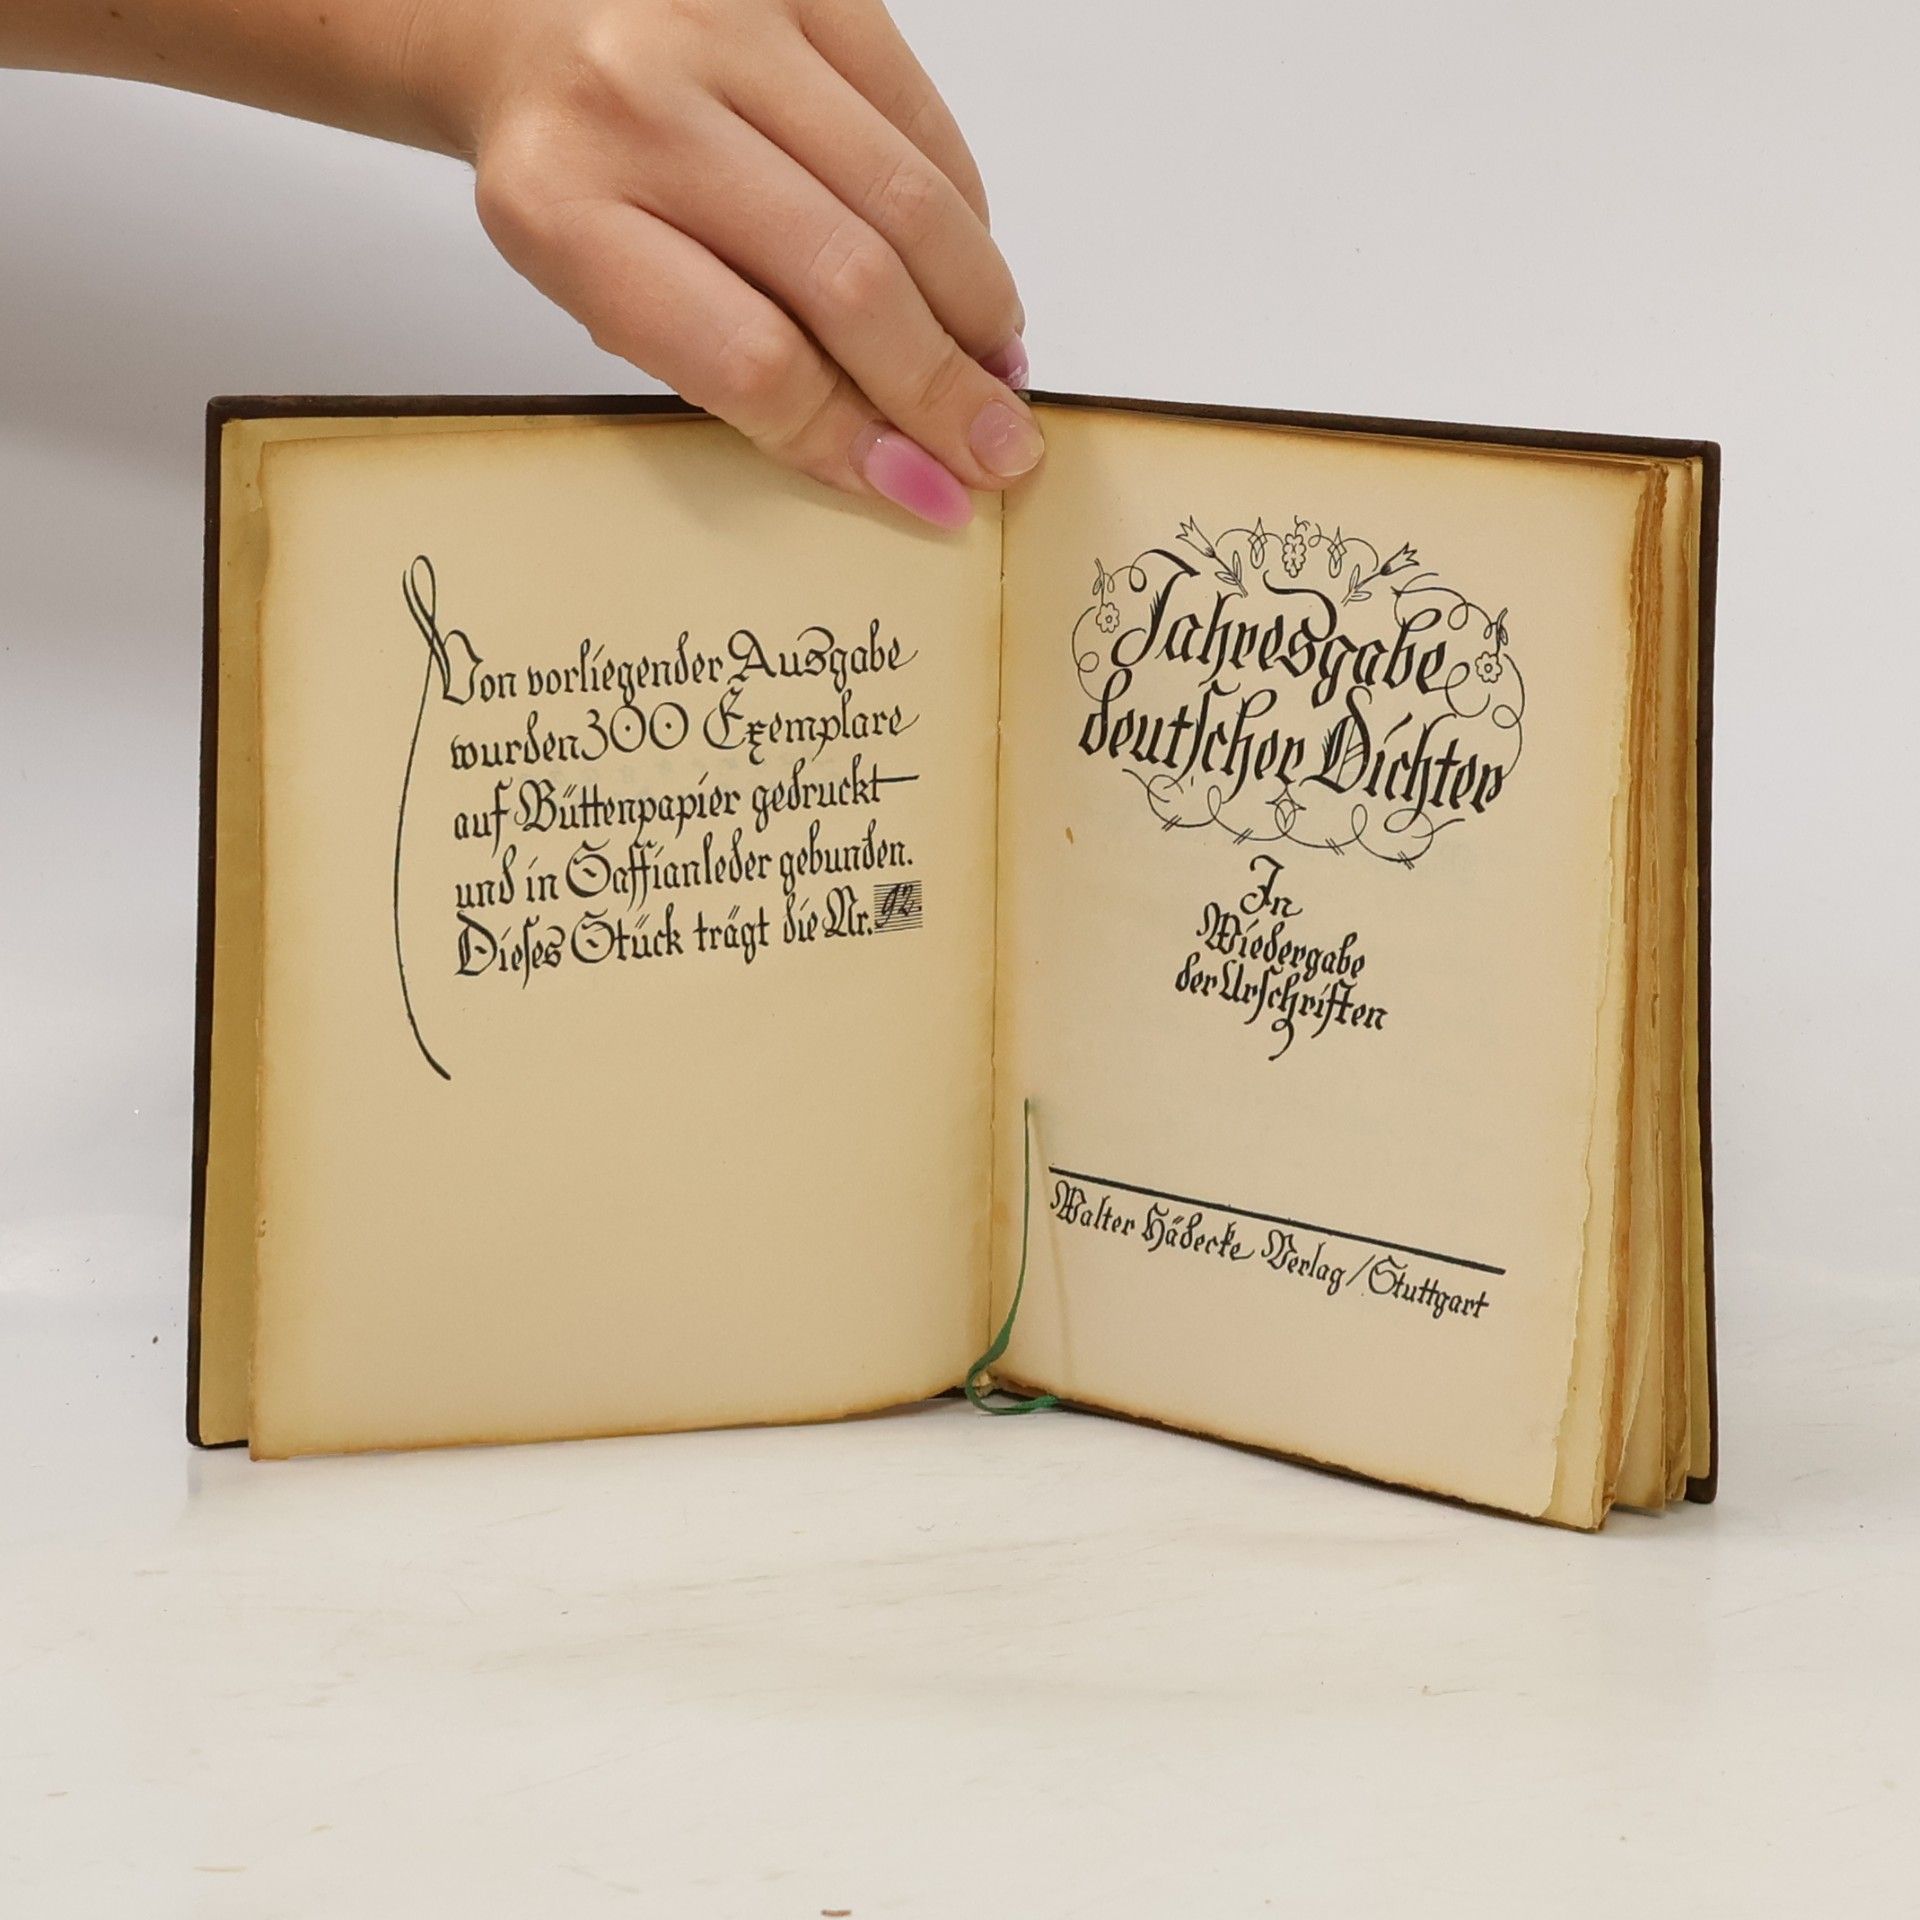 Von vorliegender Ausgabe
wurden 300 Exemplare
auf Büttenpapier gedruckt
und in Saffianleder gebunden.
Dieses Stück trägt die Nr. 92.
Jahresgabe
deutscher Dichter
In
Wiedergabe
der Urschriften
Walter Hädecke Verlag / Stuttgart